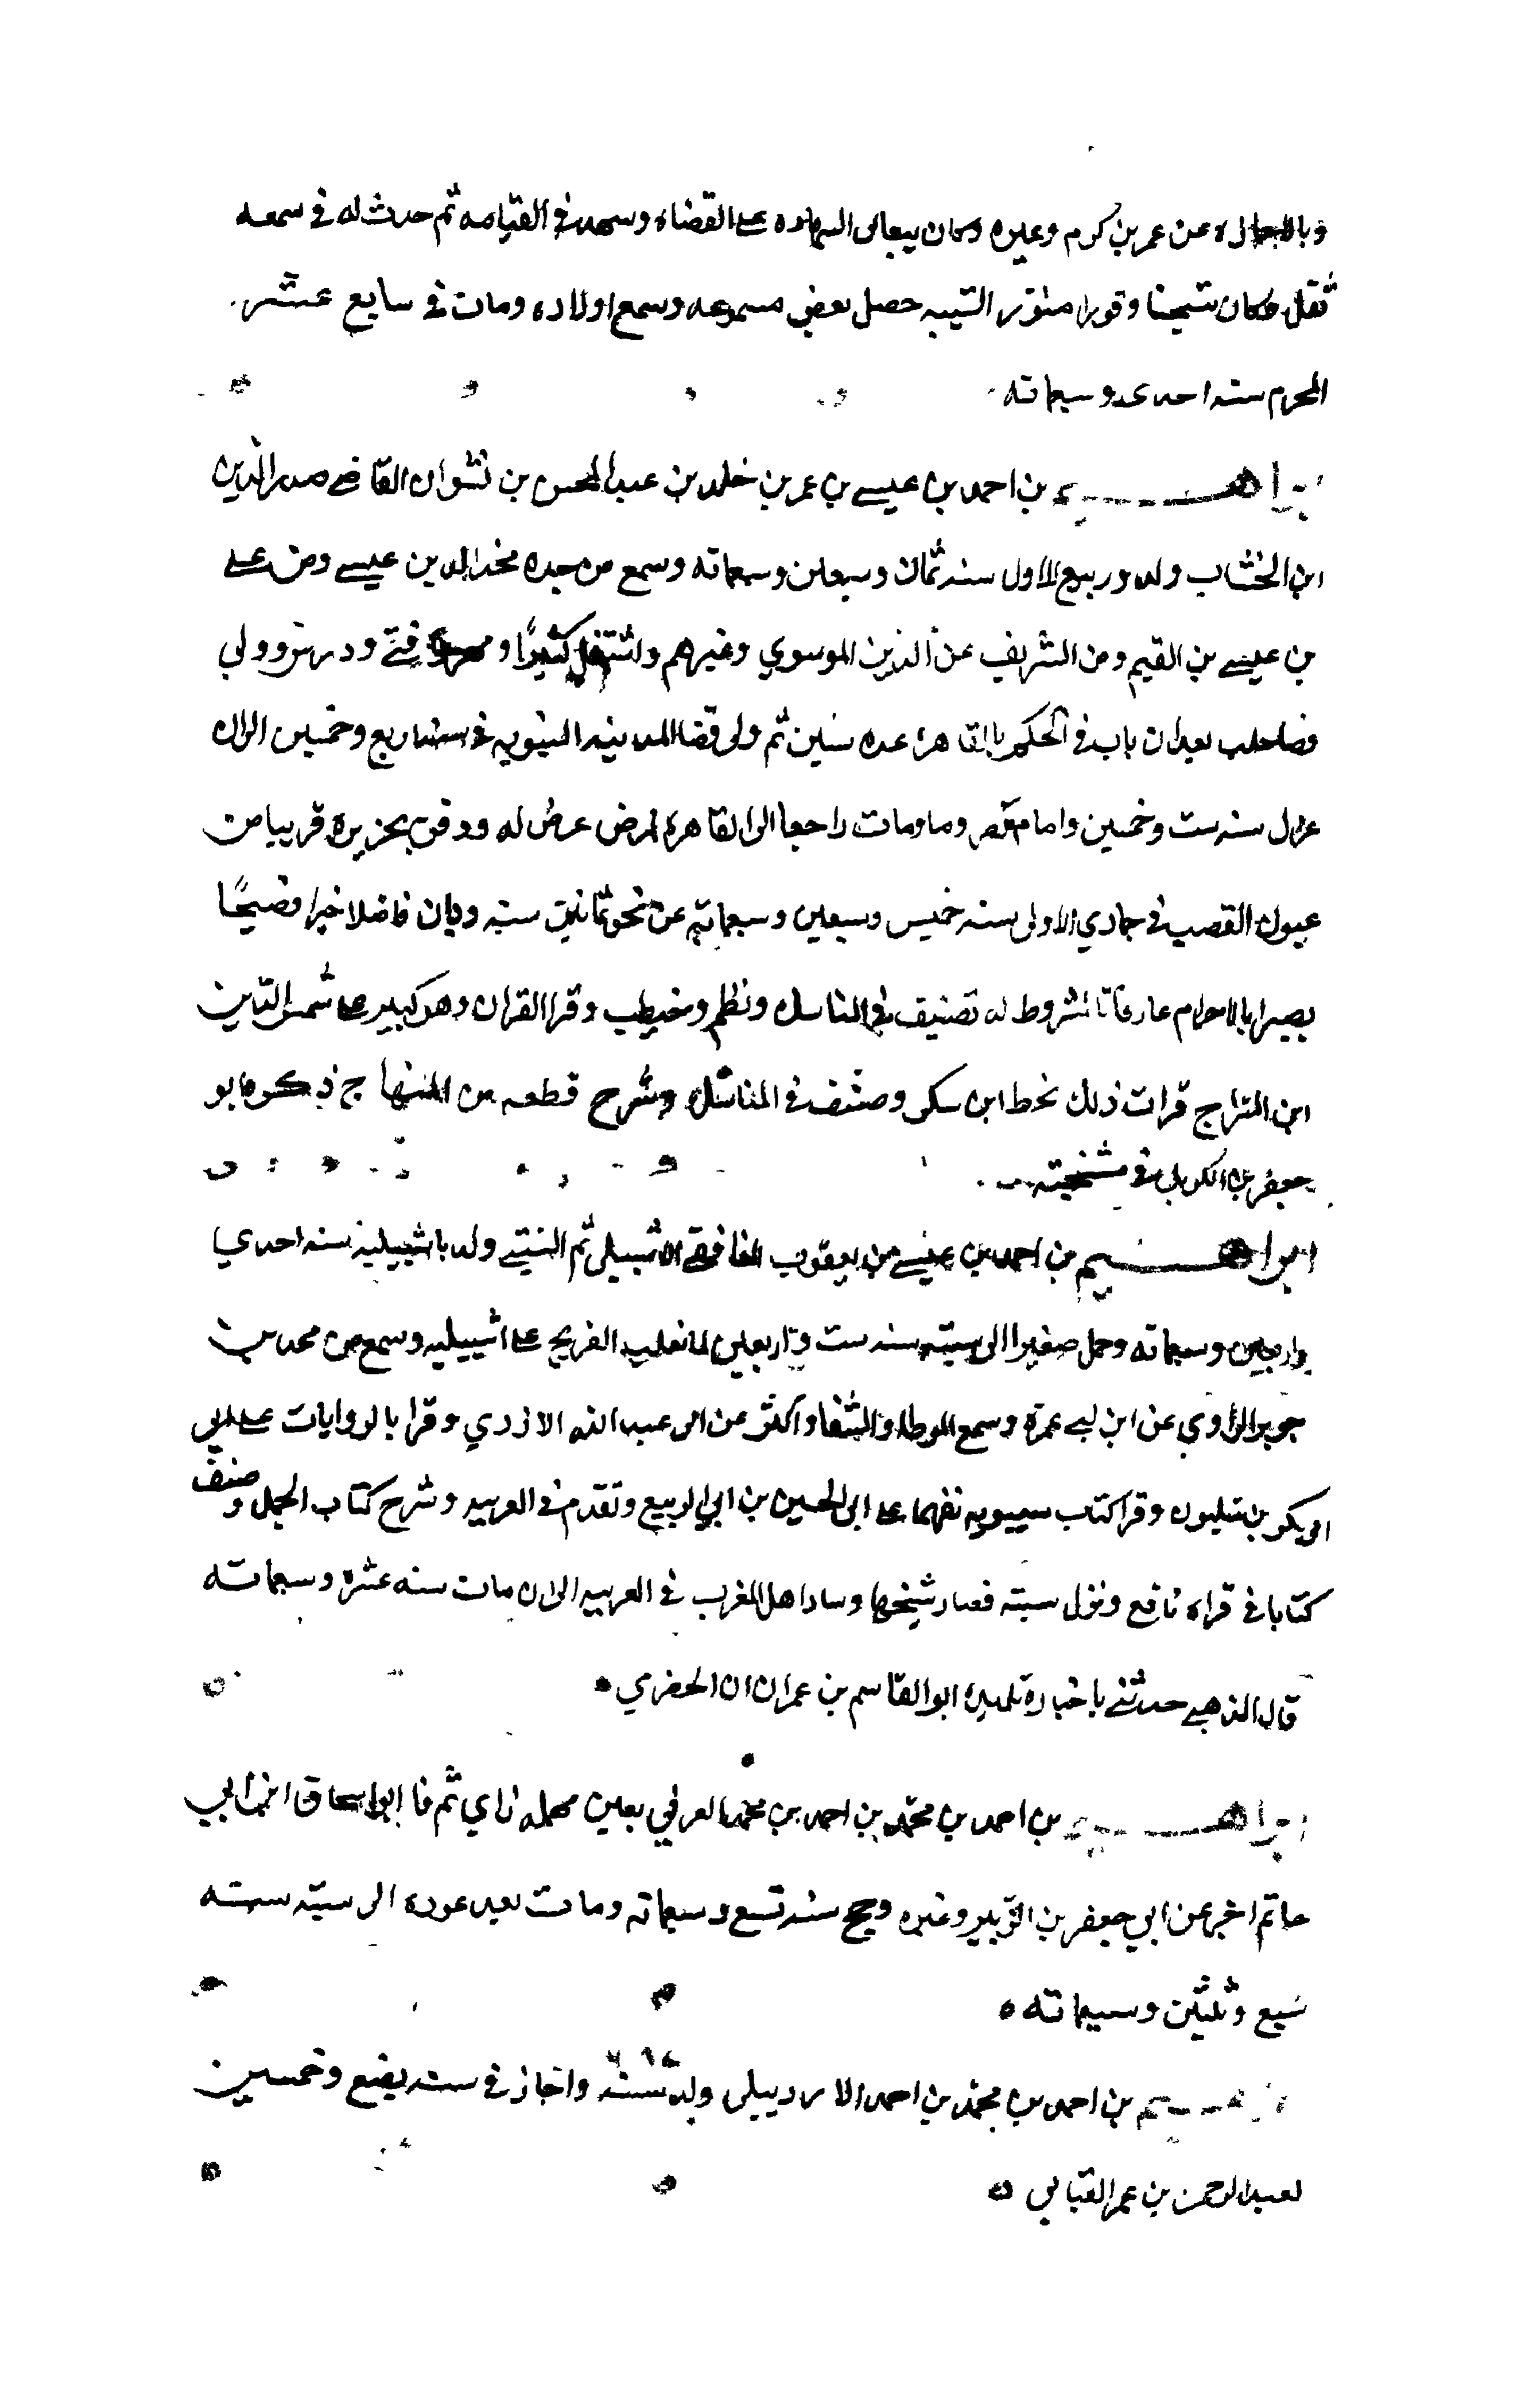 وبالاجازه عن عمر بن كرم وغيره وكان يتعانى الشهاده على القضاه وسعد في القيامه ثم حدث له في سمعه
ثقل وكان شيخنا وقورا منور الشيبه حصل بعض مسموعه وسمع اولاده ومات في سابع عشر
المحرم سنه احدى وسبعماته
ابراهيم بن احمد بن عيسى بن عمر بن خلد بن عبد المحسن بن نشوان القاضي صدر الدين
ابن الخشاب ولد في ربيع الاول سنه ثمان وسبعين وسبعماته وسمع من جده مخد الدين عيسى ومن على
بن عيسى بن القيم ومن الشريف عز الدين الموسوي وغيرهم واشتغل كثيرًا وافتى ودرس وولي
قضا حلب بعد ان ناب في الحكم بالقاهره عده سنين ثم ولى قضا المدينه النبويه في سنه اربع وخمسين الى ان
عزل سنه ست وخمسين واما بمصر ومات راجعا الى القاهره لمرض عرض له ودفن بجزيره قريبا من
عيون القصب في جمادي الاولى سنه خمس وسبعين وسبعمائه عن نحو ثمانين سنه وكان فاضلا خيرا فصيحًا
بصيرا بالاحكام عارفا بالشروط له تصنيف في المناسك ونظم وخطب وقرا القران وهو كبير على شمس الدين
ابن السراج قرات ذلك بخط ابن سكر وصنف في المناسك وشرح قطعه من المنهاج ذكره ابو
جعفر بن الكويك في مشيخته
ابراهيم بن احمد بن عيسى بن يعقوب الغافقي الاشبيلي ثم السبتي ولد باشبيلية سنه احدي
واربعين وسبعماته وحمل صغيرا الى سبته سنه ست واربعين لما تغلب الفرنج على اشبيليه وسمع من محمد بن
جوبر الراوي عن ابن ابي جمرة وسمع الموطا والشفا واكثر عن ابى عبد الله الازدي وقرا بالروايات على ابي
ابى بكر بن شليون وقرا كتاب سيبويه تفهما على ابى الحسين بن ابي الربيع وتقدم في العربيه وشرح كتاب الجمل وصنف
كتابا في قراه نافع ونزل سبته فصار شيخها وساد اهل المغرب في العربيه الى ان مات سنه عشره وسبعماته
قال الذهبي حدثني باخباره تلميذه ابو القاسم بن عمران الحضري
ابراهيم بن احمد بن محمد بن احمد بن محمد العزفي بعين مهمله زاي ثم فا ابو اسحاق ابن ابي
حاتم اخبر عن ابي جعفر بن الزبير وغيره وحج سنه تسع وسبعماته ومات بعد عوده الى سبته سنه
سبع وثلثين وسبعماته
ابراهيم بن احمد بن محمد بن احمد الاردبيلى ولد سنه واجاز في سنه بضع وخمسين
لعبد الرحمن بن عمر القبابي